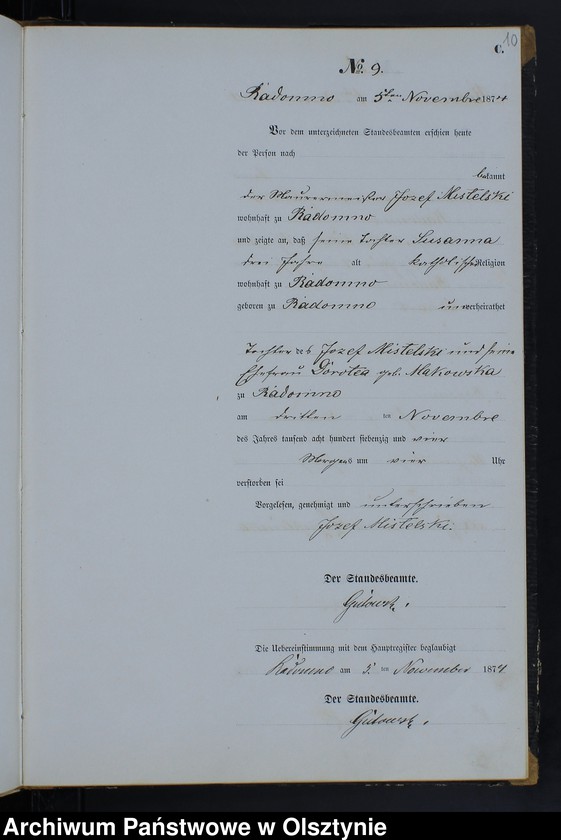 10
C.
No. 9.
Radomno am 5ten Novembre 1874
Vor dem unterzeichneten Standesbeamten erschien heute
der Person nach
bekannt
der Maurermeister Jozef Mistelski
wohnhaft zu Radomno
und zeigte an, daß seine Tochter Susanna
drei Jahre alt katholische Religion
wohnhaft zu Radomno
geboren zu Radomno unverheirathet
Tochter des Jozef Mistelski und seine
Ehefrau Dorotea geb. Makowska
zu Radomno
am dritten ten Novembre
des Jahres tausend acht hundert siebenzig und vier
Morgens um vier Uhr
verstorben sei
Vorgelesen, genehmigt und unterschrieben
Jozef Mistelski.
Der Standesbeamte.
Die Uebereinstimmung mit dem Hauptregister beglaubigt
Radomno am 5. ten November 1874.
Der Standesbeamte.
Archiwum Państwowe w Olsztynie